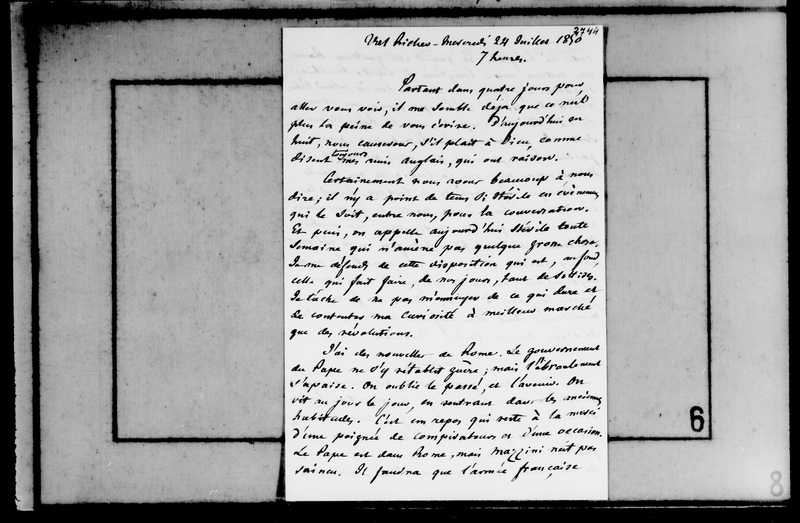 2744
Val Richer - Mercredi 24 Juillet 1850
7 heures.
Partant dans quatre jours pour
aller vous voir, il me semble déjà que ce n'est
plus la peine de vous écrire. D'aujourd'hui en
huit, nous causerons, s'il plait à Dieu, comme
disent toujours mes amis anglais, qui ont raison.
Certainement nous avons beaucoup à nous
dire ; il n'y a point de tems si stérile en évènemens
qui le soit, entre nous, pour la conversation.
Et puis, on appelle aujourd'hui stérile toute
semaine qui n'amène pas quelque grosse chose.
Je me défends de cette disposition qui est, au fond,
celle qui fait faire, de nos jours, tant de sottises.
Je tâche de ne pas m'ennuyer de ce qui dure et
de contenter ma curiosité à meilleur marché
que des révolutions.
J'ai des nouvelles de Rome. Le gouvernement
du Pape ne s'y rétablit guère ; mais l'ébranlement
s'apaise. On oublie le passé, et l'avenir. On
vit au jour le jour, en rentrant dans les mêmes
habitudes. C'est un repos qui reste à la merci
d'une poignée de conspirateurs et d'une occasion.
Le Pape est dans Rome, mais Mazzini n'est pas
vaincu. Il faudra que l'armée française
6
8